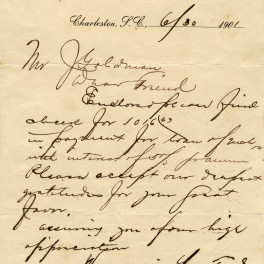 Charleston, S.C. 6/30 1901
Mr J. Goldman
Dear Friend
Enclosed please find
check for
in payment for loan of
with interest
Please accept our deepest
gratitude for your great
favor.
assuring you of our high
appreciation